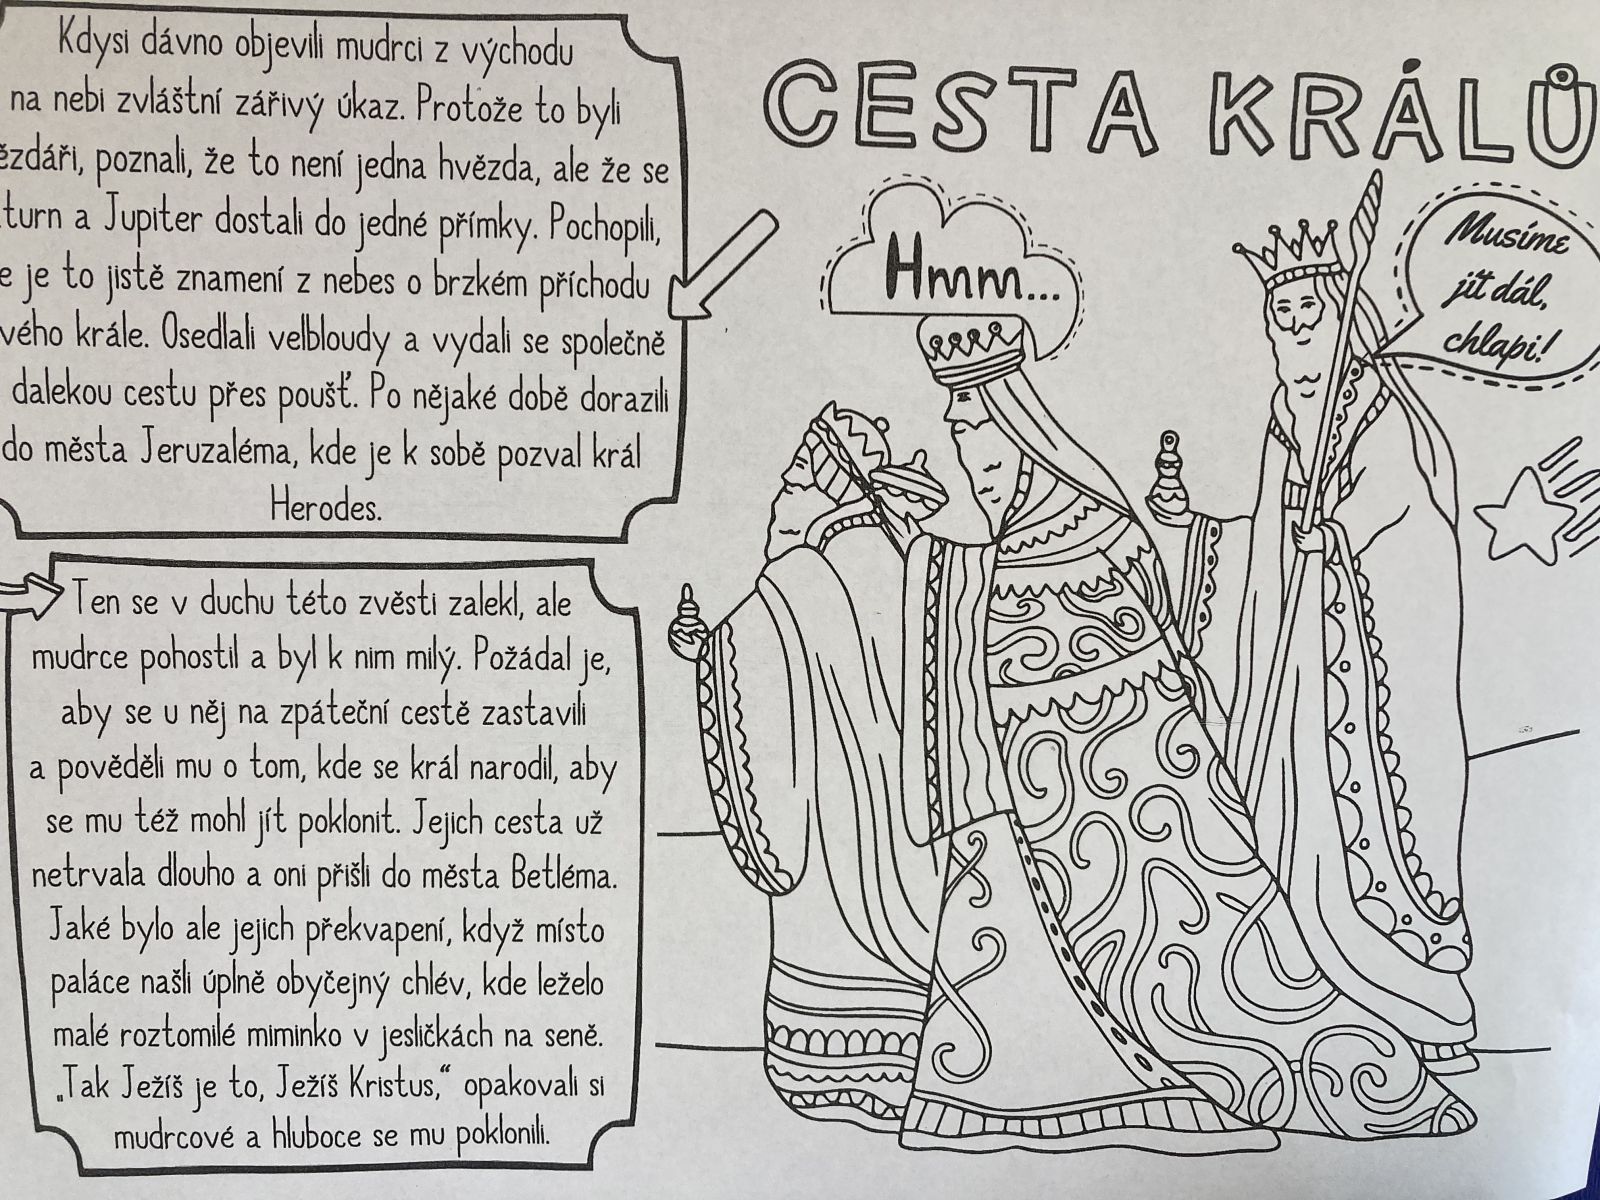 Kdysi dávno objevili mudrci z východu
na nebi zvláštní zářivý úkaz. Protože to byli
ězdáři, poznali, že to není jedna hvězda, ale že se
turn a Jupiter dostali do jedné přímky. Pochopili,
e je to jistě znamení z nebes o brzkém příchodu
vého krále. Osedlali velbloudy a vydali se společně
dalekou cestu přes poušť. Po nějaké době dorazili
do města Jeruzaléma, kde je k sobě pozval král
Herodes.
Ten se v duchu této zvěsti zalekl, ale
mudrce pohostil a byl k nim milý. Požádal je,
aby se u něj na zpáteční cestě zastavili
a pověděli mu o tom, kde se král narodil, aby
se mu též mohl jít poklonit. Jejich cesta už
netrvala dlouho a oni přišli do města Betléma.
Jaké bylo ale jejich překvapení, když místo
paláce našli úplně obyčejný chlév, kde leželo
malé roztomilé miminko v jesličkách na seně.
„Tak Ježíš je to, Ježíš Kristus,“ opakovali si
mudrcové a hluboce se mu poklonili.
CESTA KRÁLŮ
Hmm...
Musíme
jít dál,
chlapi!